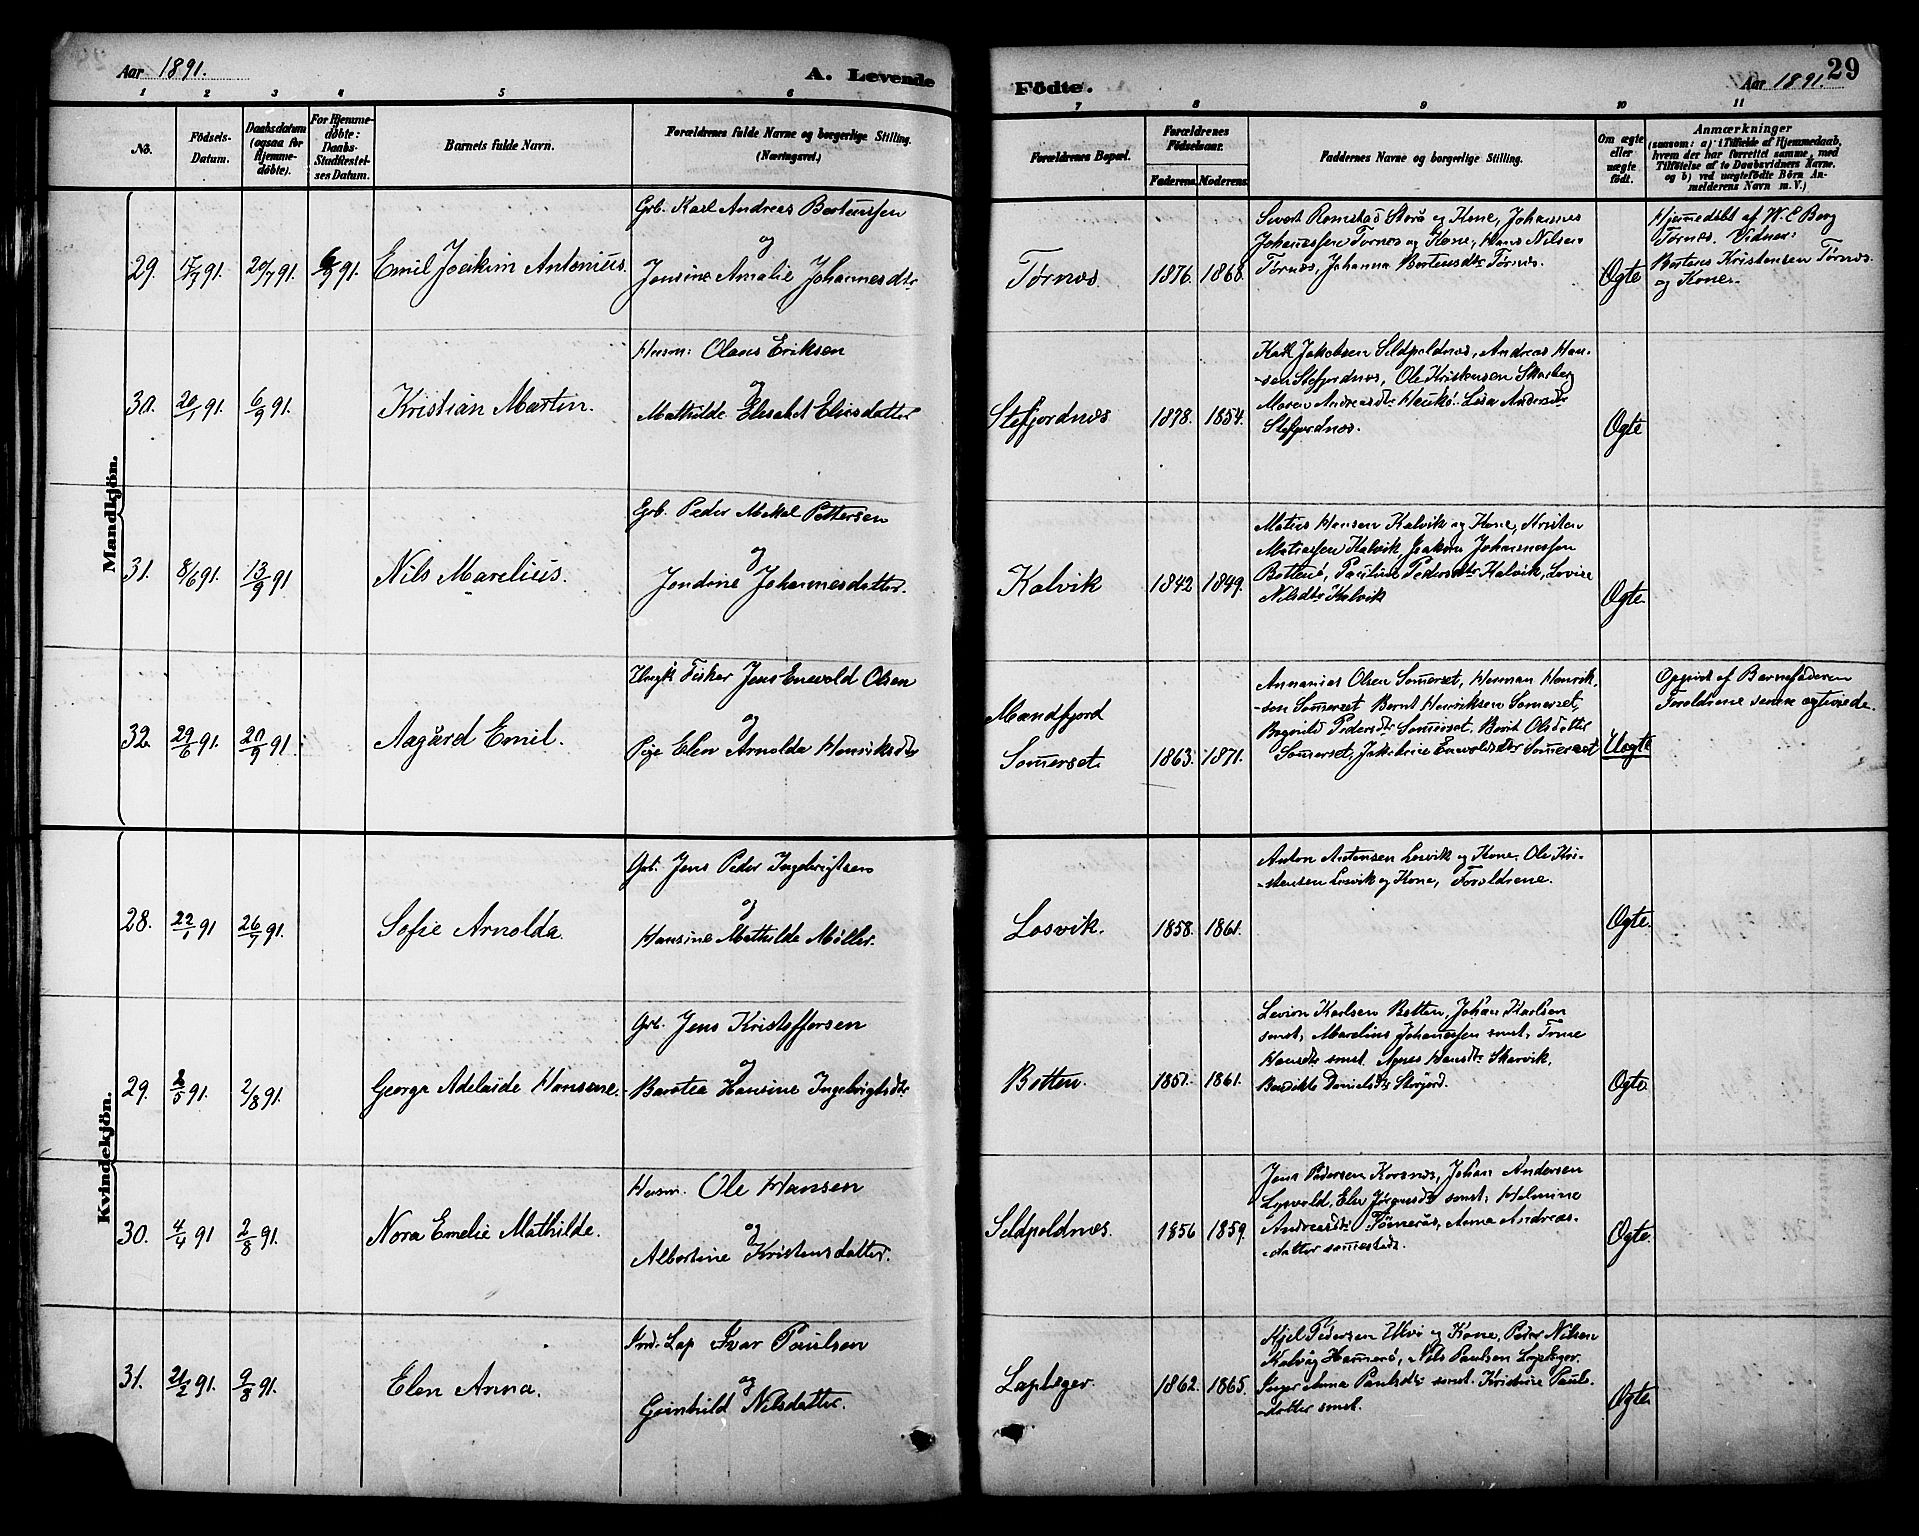 Aar 1891.
A. Levende
Födte.
Aar 1891.
29
1 2 3 4 5 6 7 8 9 10 11
No.
Födsels-
Datum.
Daabsdatum
(ogsaa for
Hjemme-
döbte).
For Hjemme-
döbte:
Daabs-
Stadfæstel-
ses Datum.
Barnets fulde Navn.
Forældrenes fulde Navne og borgerlige Stilling.
(Næringsvei.)
Forældrenes Bopæl.
Forældrenes
Födselsaar.
Faderens. Moderens.
Faddernes Navne og borgerlige Stilling.
Om ægte
eller
uægte
født.
Anmærkninger
(saasom: a) i Tilfælde af Hjemmedaab,
hvem der har forrettet samme, med
Tilföielse af to Daabsvidners Navne,
og b) ved uægtefödte Börn An-
melderens Navn m. V.)
Mandkjön.
29. 17/7 91. 20/7 91. 6/9 91. Emil Joakim Antonius.
Grb. Karl Andreas Berteussen
og
Jensine Amalie Johannesdtr
Tørnes 1876. 1868.
Sivert Romstad Storå og Kone, Johannes
Johannessen Tørnes og Kone, Hans Nilsen
Tørnes, Johanna Berteusdtr Tørnes.
Ægte
Hjemmedøbt af W. C Berg
Tørnes. Vidner:
Berteus Kristensen Tørnes
og Kone.
30. 20/1 91. 6/9 91. Kristian Martin.
Husm: Olaus Eriksen
og
Mathilde Elisabet Eliasdatter
Stefjordnes 1878. 1854.
Karl Jakobsen Seldpoldnes, Andreas Han-
-sen Stefjordnes, Ole Kristensen Skarberg
Maren Andreasdtr Haukø. Lesa Andersdtr
Stefjordnes.
Ægte
31. 8/6 91. 13/9 91. Nils Marelius.
Grb. Peder Mekal Pettersen
og
Jendine Johannesdatter.
Kalvik 1842 1849.
Matias Hansen Kalvik og Kone, Kristen
Matiassen Kalvik, Joakim Johannessen
Bottenø, Pauline Pedersdtr Kalvik, Lovise
Nilsdtr Kalvik
Ægte.
32. 29/6 91. 20/9 91. Aagård Emil.
Ungk. Fisker Jens Enevold Olsen
og
Pige Elen Arnolda Henriksdtr
Mandfjord
Sömerset. 1863. 1871.
Annanias Olsen Sömerset, Herman Henrik.
-sen Sömerset Bernt Henriksen Sömerset,
Ragnild Pedersdtr Sömerset. Berit Olsdatter
Sömerset, Jakobine Enevoldsdtr Sömerset
Uægte
Opgivet af Barnefaderen
Foreldrene senere egteviede.
Kvindekjön.
28. 22/1 91 26/7 91. Sofie Arnolda.
Grb. Jens Peder Ingebrigtsen
og
Hansine Mathilde Møller.
Losvik. 1858. 1861.
Anton Antonsen Losvik og Kone. Ole Kri-
-stensen Losvik og Kone, Foreldrene.
Ægte.
29. 2/5 91. 2/8 91. Georga Adelaide Hansene.
Grb. Jens Kristoffersen
og
Barstea Hansine Ingebrigtsdtr
Botten. 1851. 1861.
Levion Karlsen Botten, Johan Karlsen
samst. Marelius Johanessen samst. Trine
Hansdtr samst. Agnes Hansdtr Skarvik.
Benedikte Danielsdtr Storjord.
Ægte
30. 4/4 91 2/8 91. Nora Emelie Mathilde.
Husm. Ole Hansen
og
Albertine Kristensdatter.
Seldpoldnes. 1856 1859.
Jens Pedersen Korsnes, Johan Andersen
Lysvold, Elen Jörgensdtr samst. Helmine
Andreasdtr Tømerås, Anna Andreas-
-datter samesteds.
Ægte.
31. 21/2 91. 9/8 91. Elen Anna.
Lap Ivar Paulsen
og
Gunhild Nilsdatter.
Lapleger. 1862. 1865.
Kjel Pedersen Ulvø og Kone, Peder Nilsen
Kalvåg Hamerø, Nils Paulsen Lapleger.
Inger Anna Paulsdtr samst. Kristine Paul-
-datter samst.
Ægte